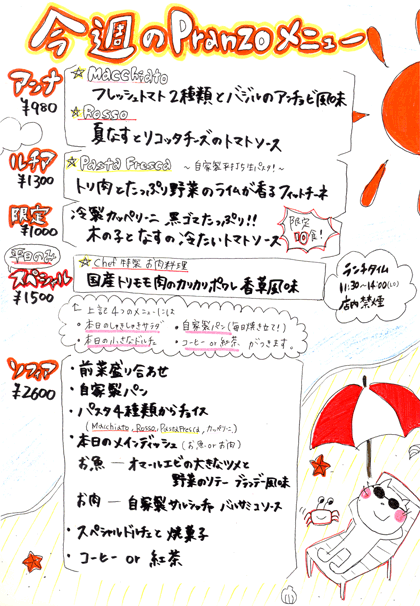 今週のPranzoメニュー
アンナ
¥980
☆Macchiato
フレッシュトマト2種類とバジルのアンチョビ風味
☆Rosso
夏なすとリコッタチーズのトマトソース
ルチア
¥1300
☆Pasta Fresca ～自家製手打ち生パスタ!～
トリ肉とたっぷり野菜のライムが香るフィットチーネ
限定
¥1000
冷製カッペリーニ 黒ゴマたっぷり!!
木の子となすの冷たいトマトソース
限定
10食!
平日のみ
スペシャル
¥1500
☆Chef特製 お肉料理
国産トリモモ肉のカリカリポワレ 香草風味
ランチタイム
11:30～14:00(LO)
店内禁煙
上記4つのメニューには
・本日のしゃきしゃきサラダ ・自家製パン(毎日焼きたて!)
・本日の小さなドルチェ ・コーヒー or 紅茶 がつきます。
ソフィア
¥2600
・前菜盛り合わせ
・自家製パン
・パスタ4種類からチョイス
(Macchiato, Rosso, Pasta Fresca, カッペリーニ)
・本日のメインディッシュ(お魚 or お肉)
お魚 ― オマールエビの大きなツメと
野菜のソテー ブランデー風味
お肉 ― 自家製サルシッチャ バルサミコソース
・スペシャルドルチェと焼菓子
・コーヒー or 紅茶